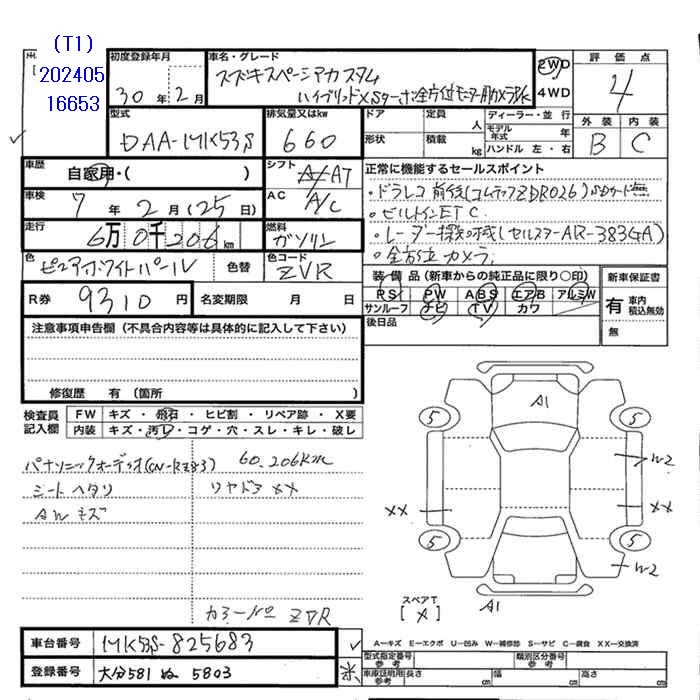 (T1)
202405
16653
初度登録年月
30年2月
車名・グレード
スズキスペーシアカスタム
ハイブリッドXSターボ全方位モニター用カメラPK
2WD
4WD
評価点
4
外装 内装
B C
型式
DAA-MK53S
排気量又はkw
660
ドア
定員
人
形状
積載
kg
ディーラー・並行
モデル年式 年
ハンドル 左・右
車歴
自家用・( )
シフト
AT
車検
7年2月(25日)
AC
A/C
走行
6万0千206km
燃料
ガソリン
色
ピュアホワイトパール
色替
色コード
ZVR
R券
9310円
名変期限 月 日
正常に機能するセールスポイント
・ドラレコ前後(コムテックZDR026)
・ビルトインETC
・レーダー探知機(セルスターAR-383GA)
・全方位カメラ
装備品(新車からの純正品に限り○印)
RS PW ABS エアB アルミW
サンルーフ ナビ TV カワ
後日品
新車保証書
有 車内積込無効
無
注意事項申告欄(不具合内容等は具体的に記入して下さい)
修復歴 有(箇所 )
検査員記入欄
FW キズ・飛石・ヒビ割・リペア跡・X要
内装 キズ・汚レ・コゲ・穴・スレ・キレ・破レ
パナソニックオーディオ
60,206km
シートヘタリ
リヤドアXX
AWキズ
カラーNo ZVR
A1
5
5
W2
XX
XX
5
5
W2
スペアT
[ X ]
A1
車台番号
MK53S-825683
登録番号
大分581 ぬ 5803
A-キズ E-エクボ U-凹み W-補修跡 S-サビ C-腐食 XX-交換済
型式指定番号 参考
類別区分番号 参考
車庫証明用 参考
長さ cm
幅 cm
高さ cm